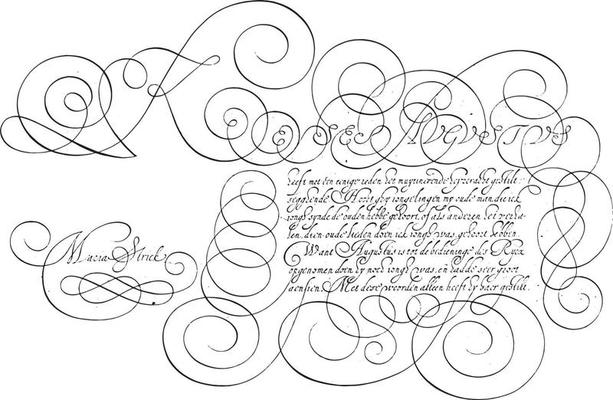 KEISER AVGVSTVS
heeft met een eenige reden het muytinerende gestilt:
seggende. Hoort ghy iongelingen my oude man, die ick
iongh synde de oude hebbe gehoort, of als anderen het verta-
len, dien oude lieden doen ick iongh was, gehoort hebben.
Want Augustus is tot de bedieninge des Rycx
opgenomen doen hy noch iongh was, en hadde seer groot
aensien. Met dese woorden alleen heeft hy haer gestilt.
Maria Strick